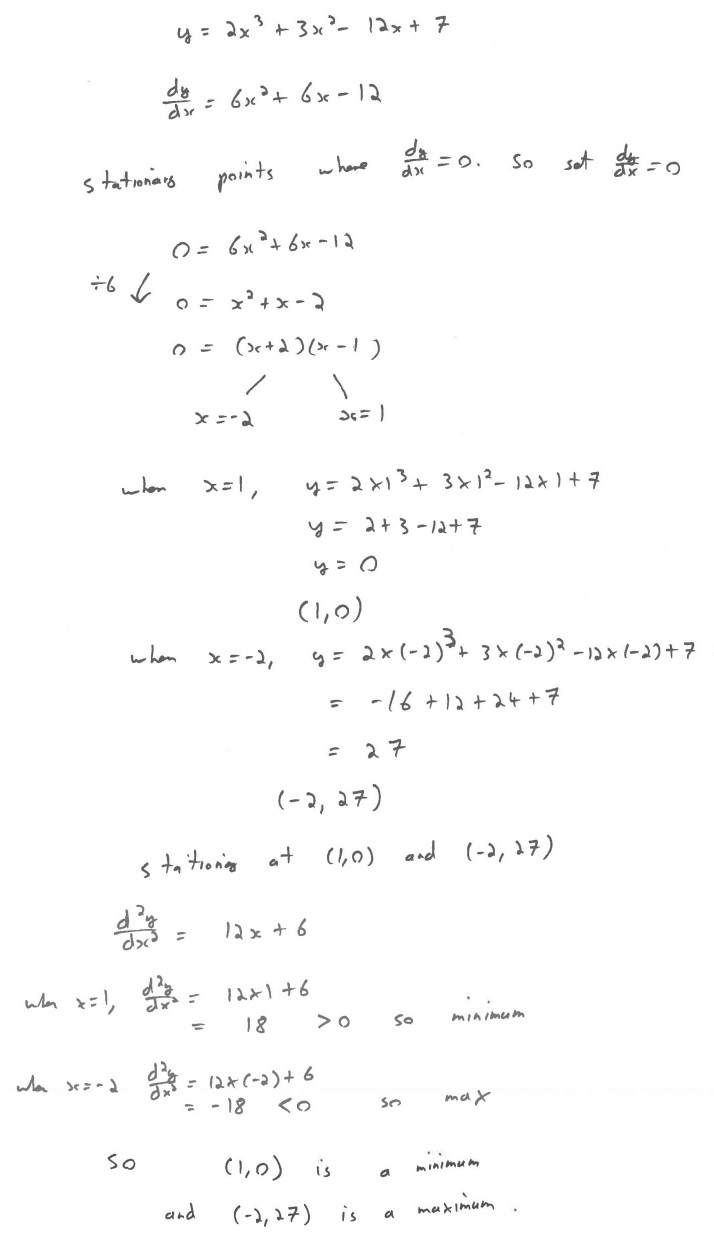 y = 2x³ + 3x² - 12x + 7
dy/dx = 6x² + 6x - 12
stationary points where dy/dx = 0. So set dy/dx = 0
0 = 6x² + 6x - 12
÷6 ↓ 0 = x² + x - 2
0 = (x+2)(x-1)
x = -2 x = 1
when x=1, y = 2×1³ + 3×1² - 12×1 + 7
y = 2+3-12+7
y = 0
(1,0)
when x = -2, y = 2×(-2)³ + 3×(-2)² - 12×(-2) + 7
= -16 + 12 + 24 + 7
= 27
(-2, 27)
stationary at (1,0) and (-2, 27)
d²y/dx² = 12x + 6
when x=1, d²y/dx² = 12×1 + 6
= 18 > 0 so minimum
when x = -2 d²y/dx² = 12×(-2) + 6
= -18 < 0 so max
So (1,0) is a minimum
and (-2,27) is a maximum.